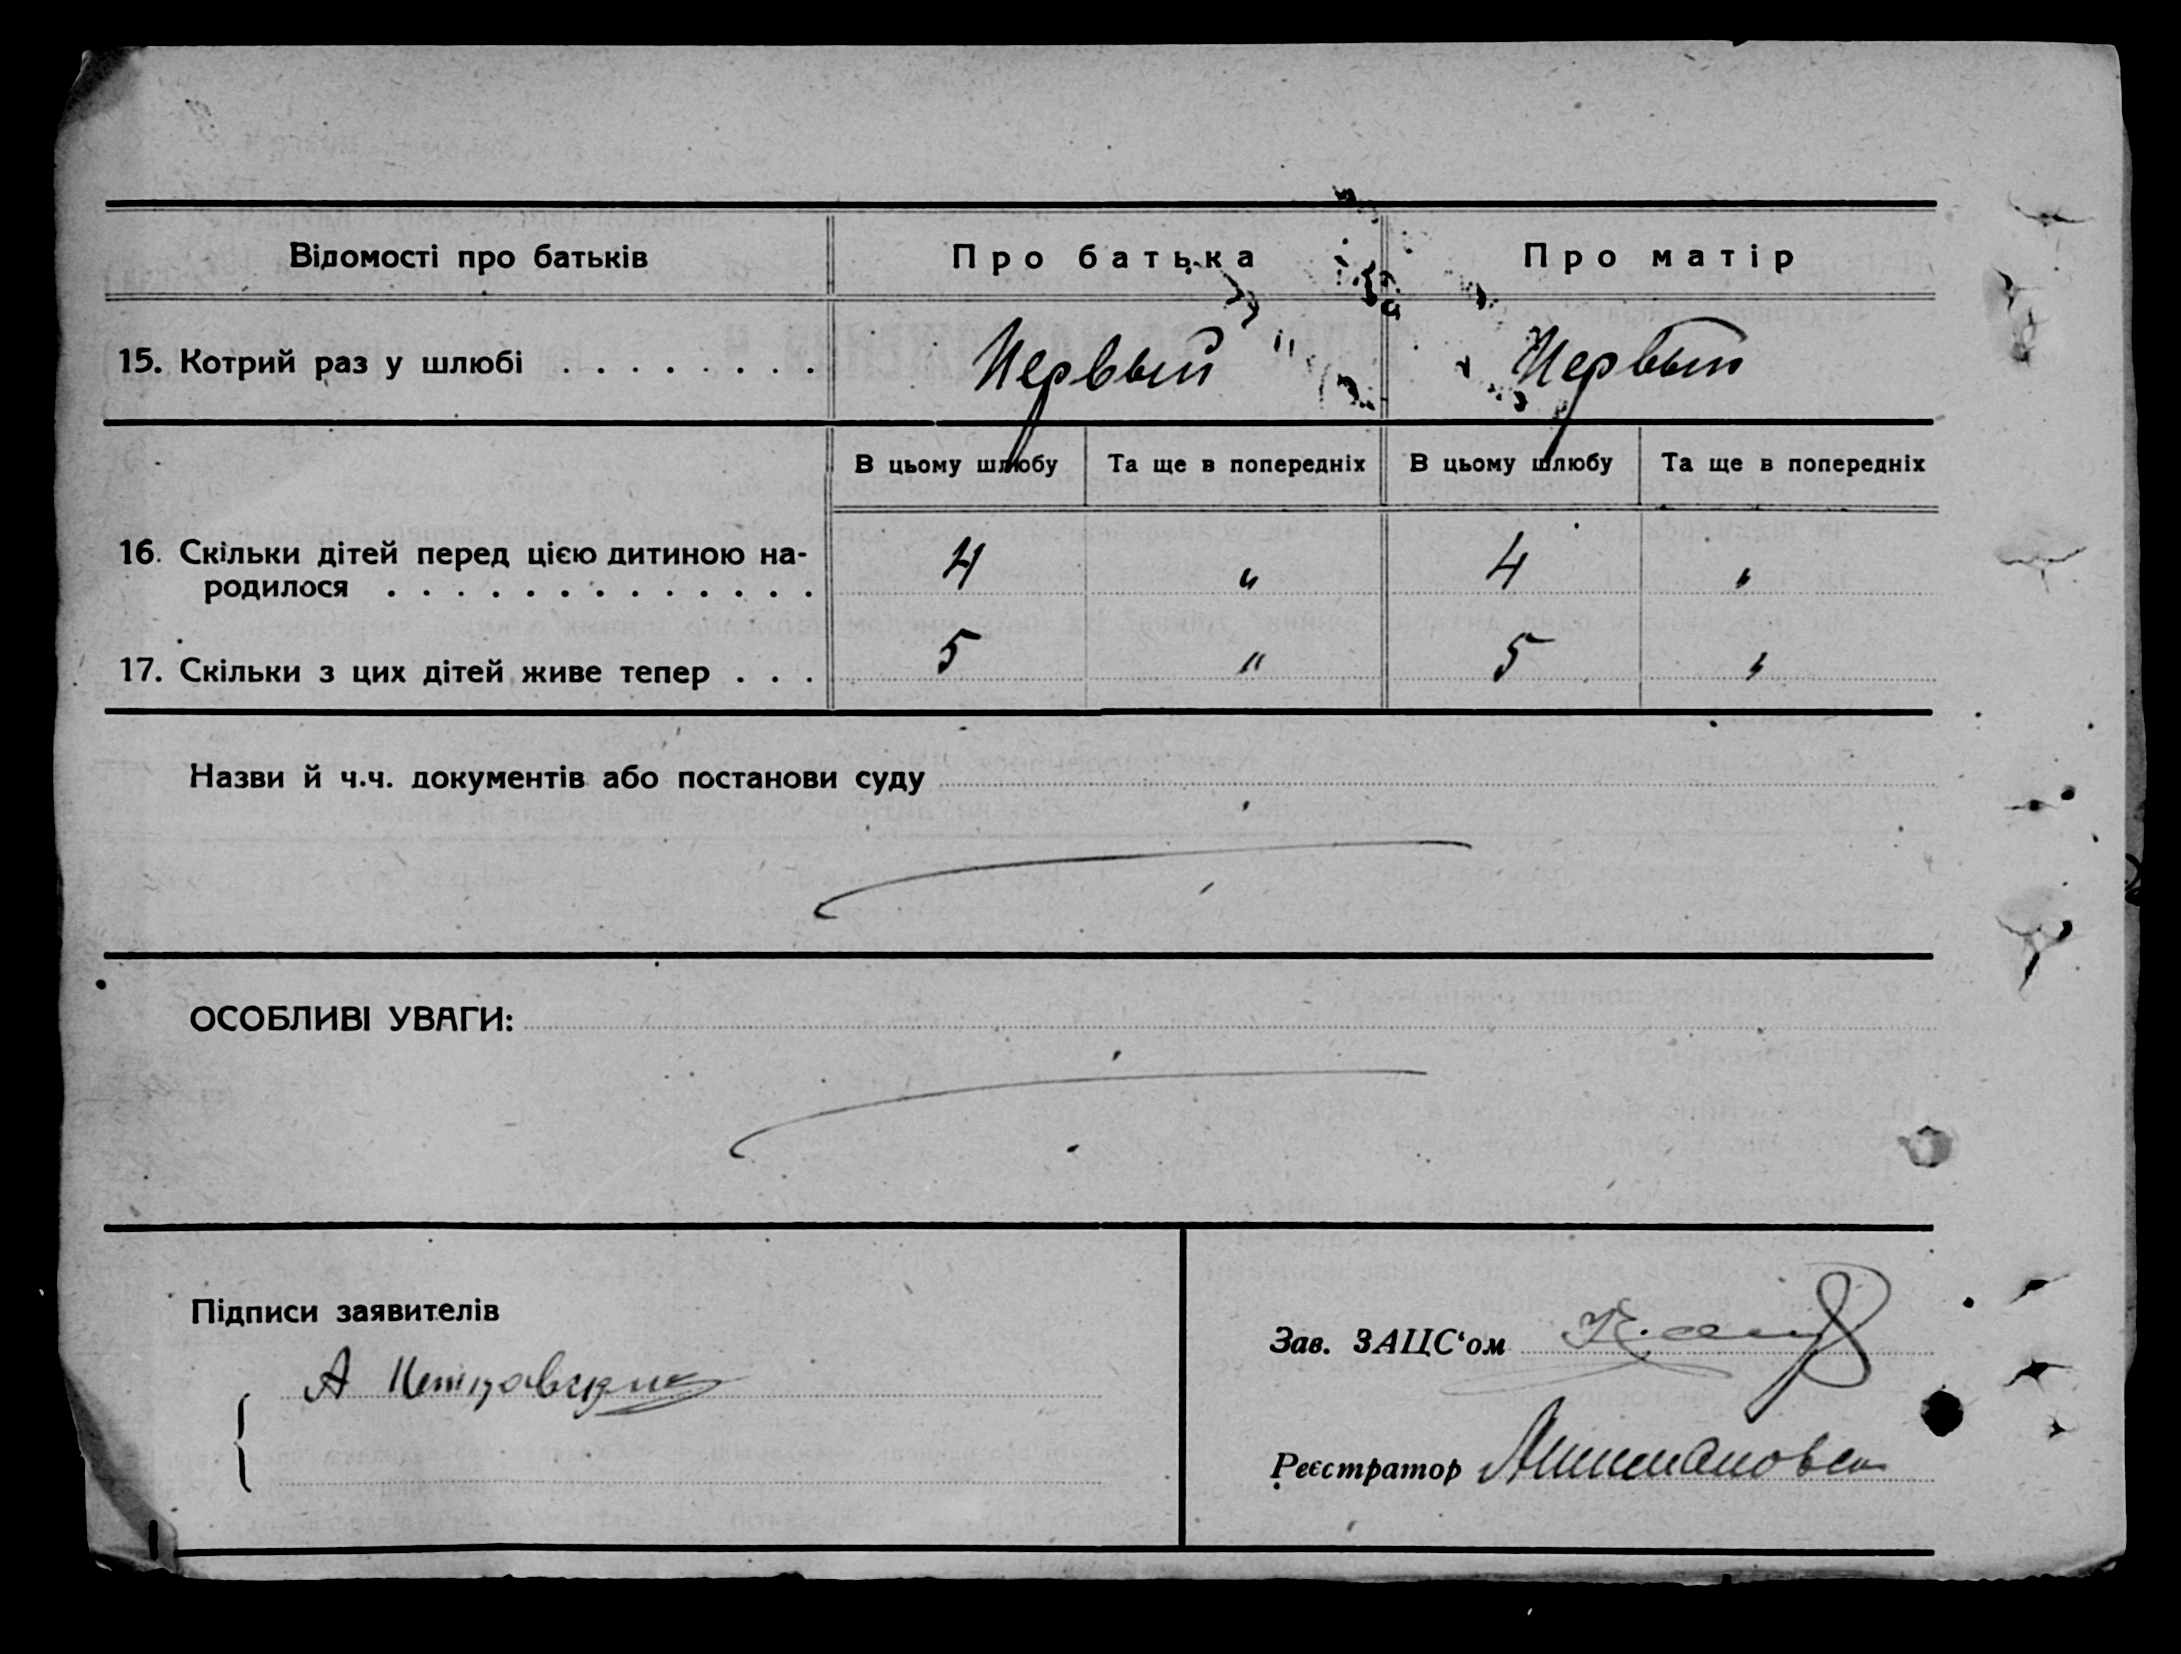 Відомості про батьків Про батька Про матір
15. Котрий раз у шлюбі . . . . . . . . Первый Первый
В цьому шлюбу Та ще в попередніх В цьому шлюбу Та ще в попередніх
16. Скільки дітей перед цією дитиною на- 4 " 4 "
родилося . . . . . . . . . . . . .
17. Скільки з цих дітей живе тепер . . . 5 " 5 "
Назви й ч.ч. документів або постанови суду
ОСОБЛИВІ УВАГИ:
Підписи заявителів
Зав. ЗАЦС‘ом
А
Реєстратор